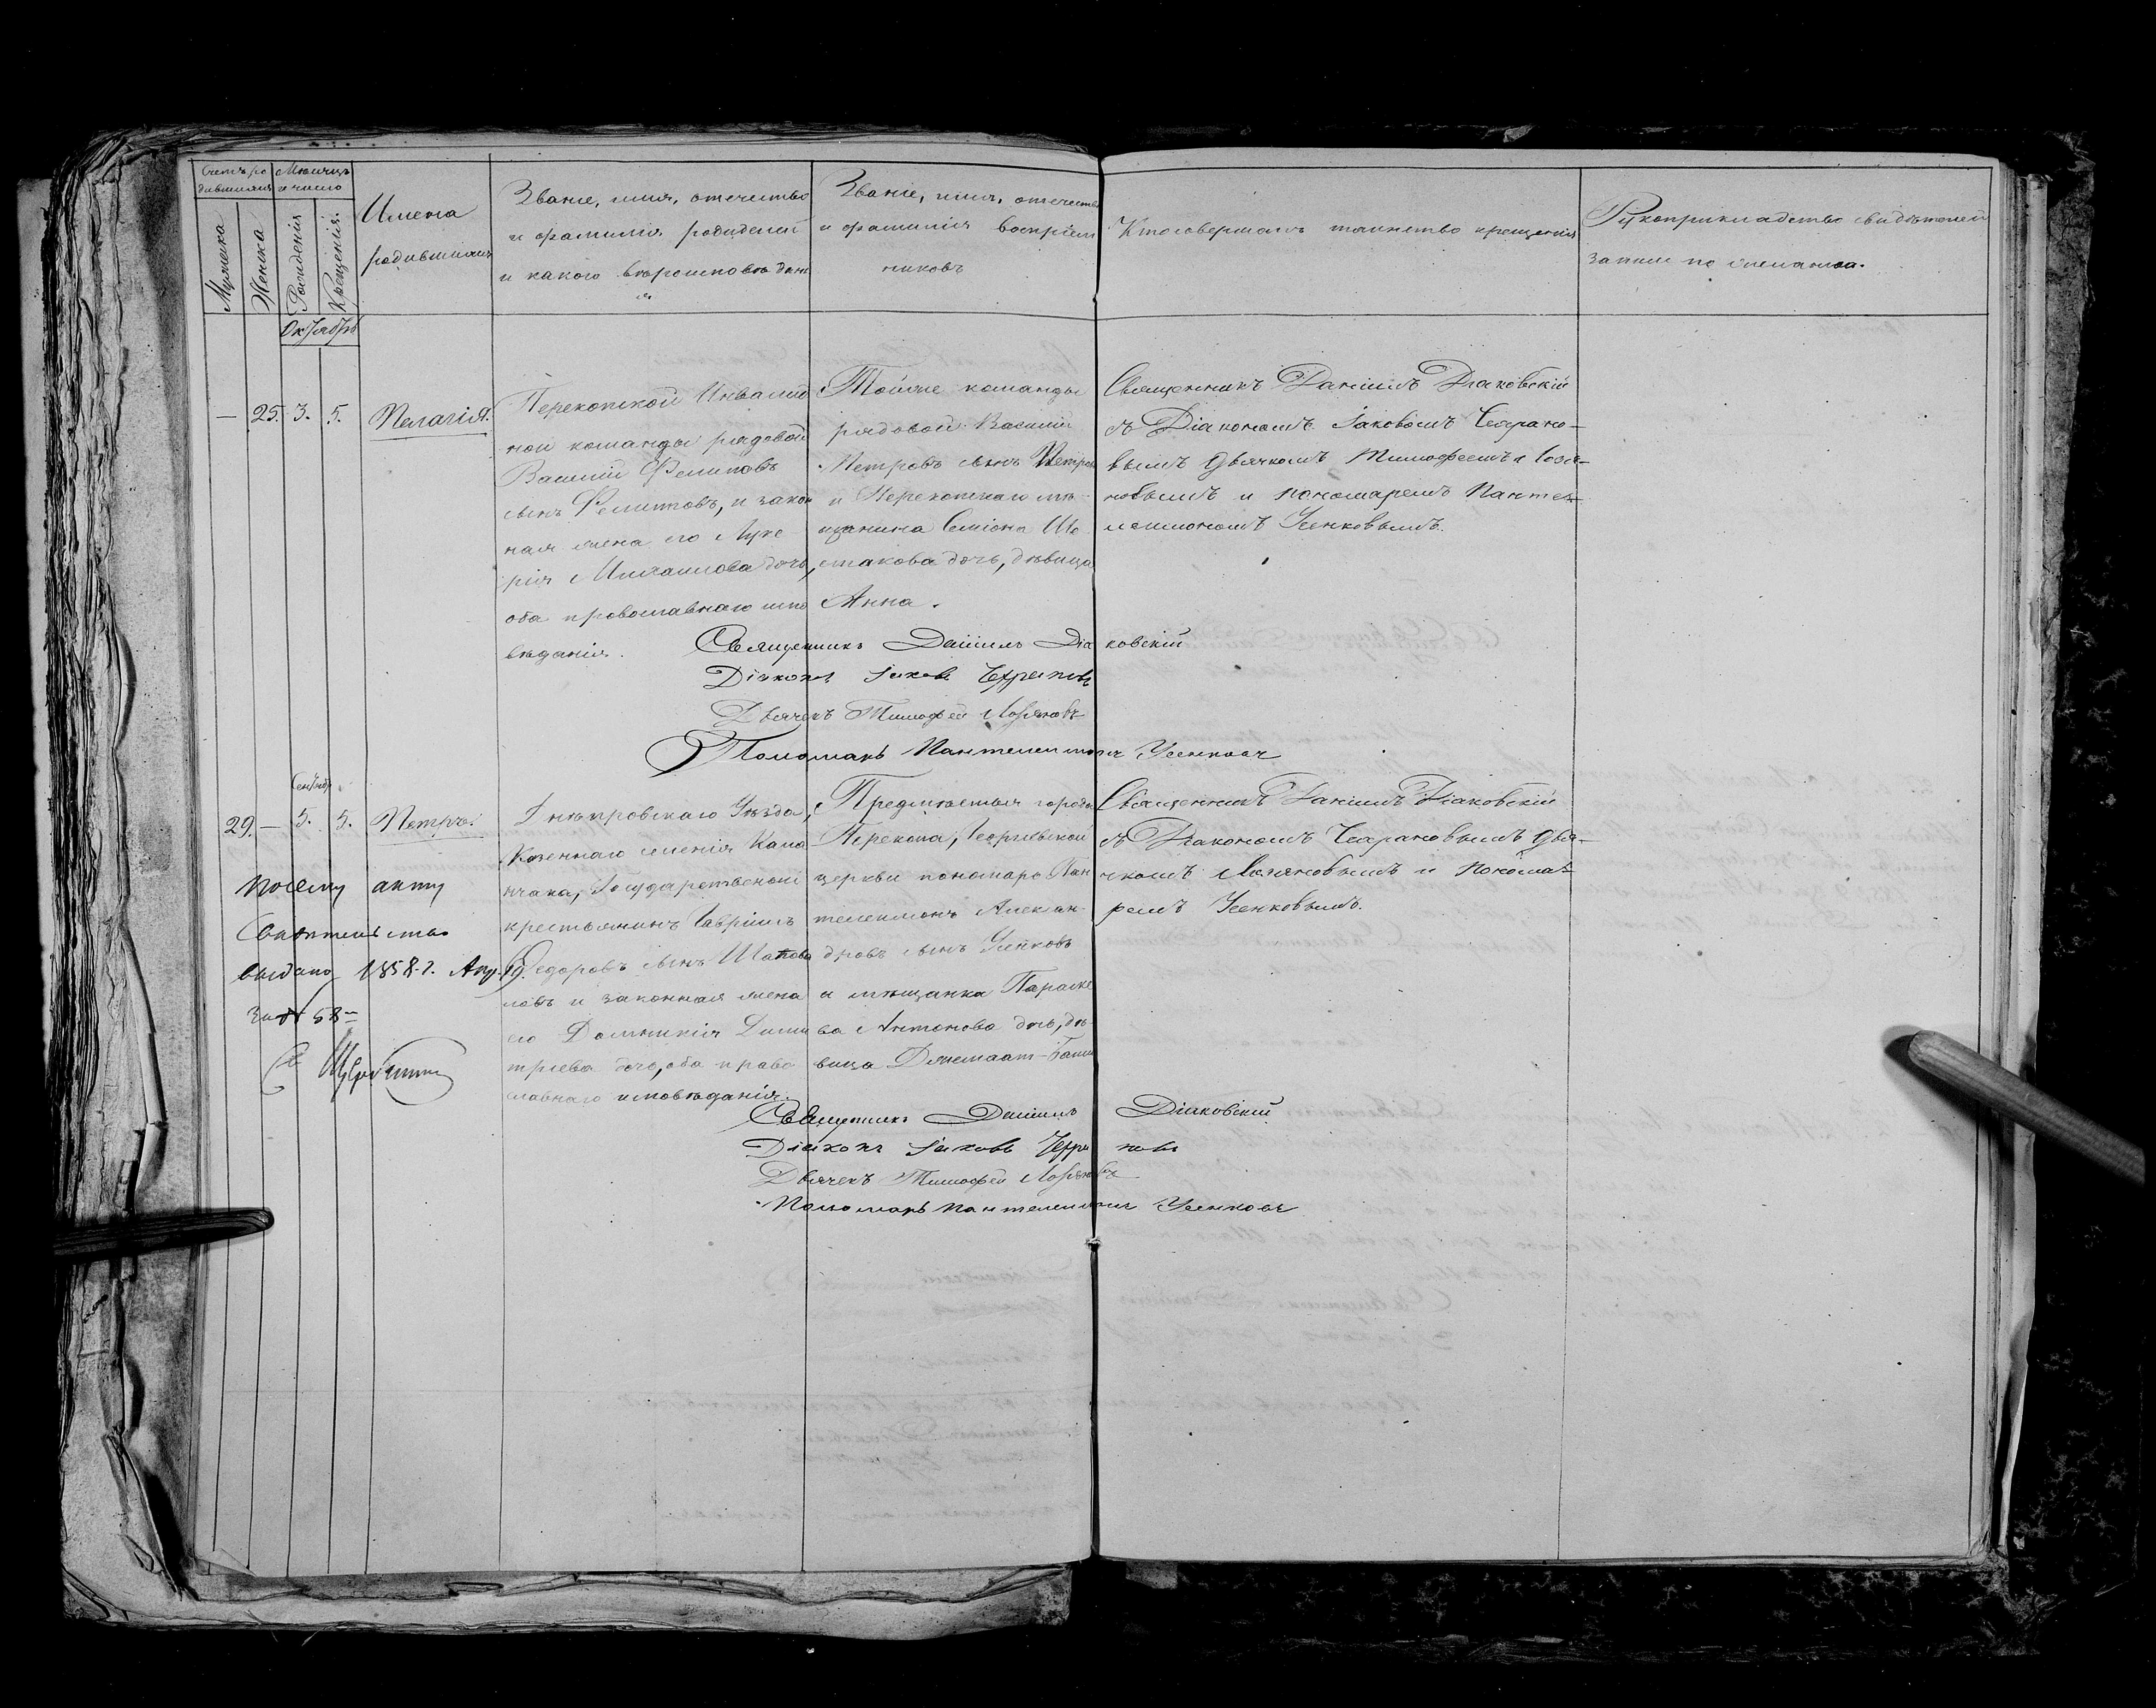 Счетъ ро
дившихся
Мѣсяцъ
и число
Мужеска
Женска
Рожденія
Крещенія.
Имена
родившихся
Званіе, имя, отечество
и фамилія родителей
и какого вѣроисповѣдан
ія
Званіе, имя, отечество
и фамилія воспріем
никовъ
Кто совершалъ таинство крещенія
Рукоприкладство свидѣтелей
записи по желанію.
Октябрь
— 25. 3. 5. Пелагія.
Перекопской Инвалид
ной команды рядовой
Василій Филиповъ
сынъ Филиповъ, и закон
ная жена его Луке
рія Михаилова дочь,
оба провославнаго испо
вѣданія.
Тойже команды
рядовой Василій
Петровъ сынъ Петровъ
и Перекопскаго мѣ-
щанина Семіона Ше
стакова дочь, дѣвица
Анна.
Священникъ Даніилъ Діаковскій
съ Діакономъ Іаковомъ
вымъ Дьячкомъ Тимофеемъ
новымъ и пономаремъ Панте-
леимономъ Усенковымъ.
Священникъ Даніилъ Діаковскій
Діаконъ Іаковъ
Дьячекъ Тимофей
Пономарь Пантелеимонъ Усенковъ
Сентябр.
29. — 5. 5. Петръ.
Днѣпровскаго Уѣзда,
Козеннаго имѣнія Кала
нчака, Государственный
крестьянинъ Гавріилъ
Федоровъ сынъ Шапова
ловъ и законная жена
его Домникія Дими
тріева дочь, оба право
славнаго исповѣданія.
Предмѣстья города
Перекопа, Георгіевской
церкви пономарь Пан
телеимонъ Алексан-
дровъ сынъ Усенковъ
и мѣщанка Параске
ва Антонова дочь, дѣ-
вица
Священникъ Даніилъ Діаковскій
съ Діакономъ Дья-
чкомъ и Понома-
ремъ Усенковымъ.
По сему акту
Свидѣтельство
выдано 1858. г. Апр. 19.
за № 68
Священникъ Даніилъ Діаковскій
Діаконъ Іаковъ
Дьячекъ Тимофей
Пономарь Пантелеимонъ Усенковъ